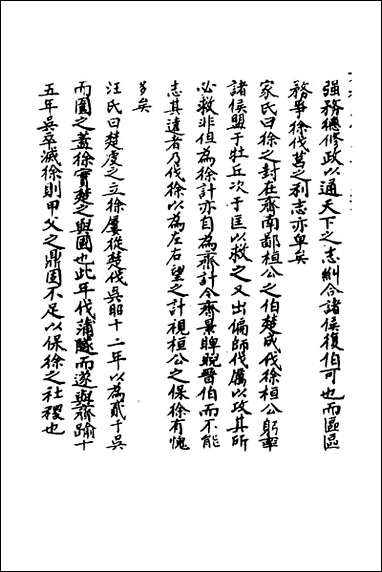 强務總修政以通天下之志糾合諸侯復伯可也而區區
務爭徐莒之利志亦卑矣
家氏曰徐之封在齊南鄙桓公之伯楚成伐徐桓公躬率
諸侯盟于牡丘次于匡以救之又出偏師伐厲以攻其所
必救非但為徐計亦自為齊計今齊景睥睨醫伯而不能
志其遠者乃伐徐以為左右望之計視桓公之保徐有愧
多矣
汪氏曰楚虔之立徐屢從楚伐吳昭十二年以為貳于吳
而圍之蓋徐實楚之與國也此年代蒲隧而遂與齊踰十
五年吳卒滅徐則甲父之鼎固不足以保徐之社稷也